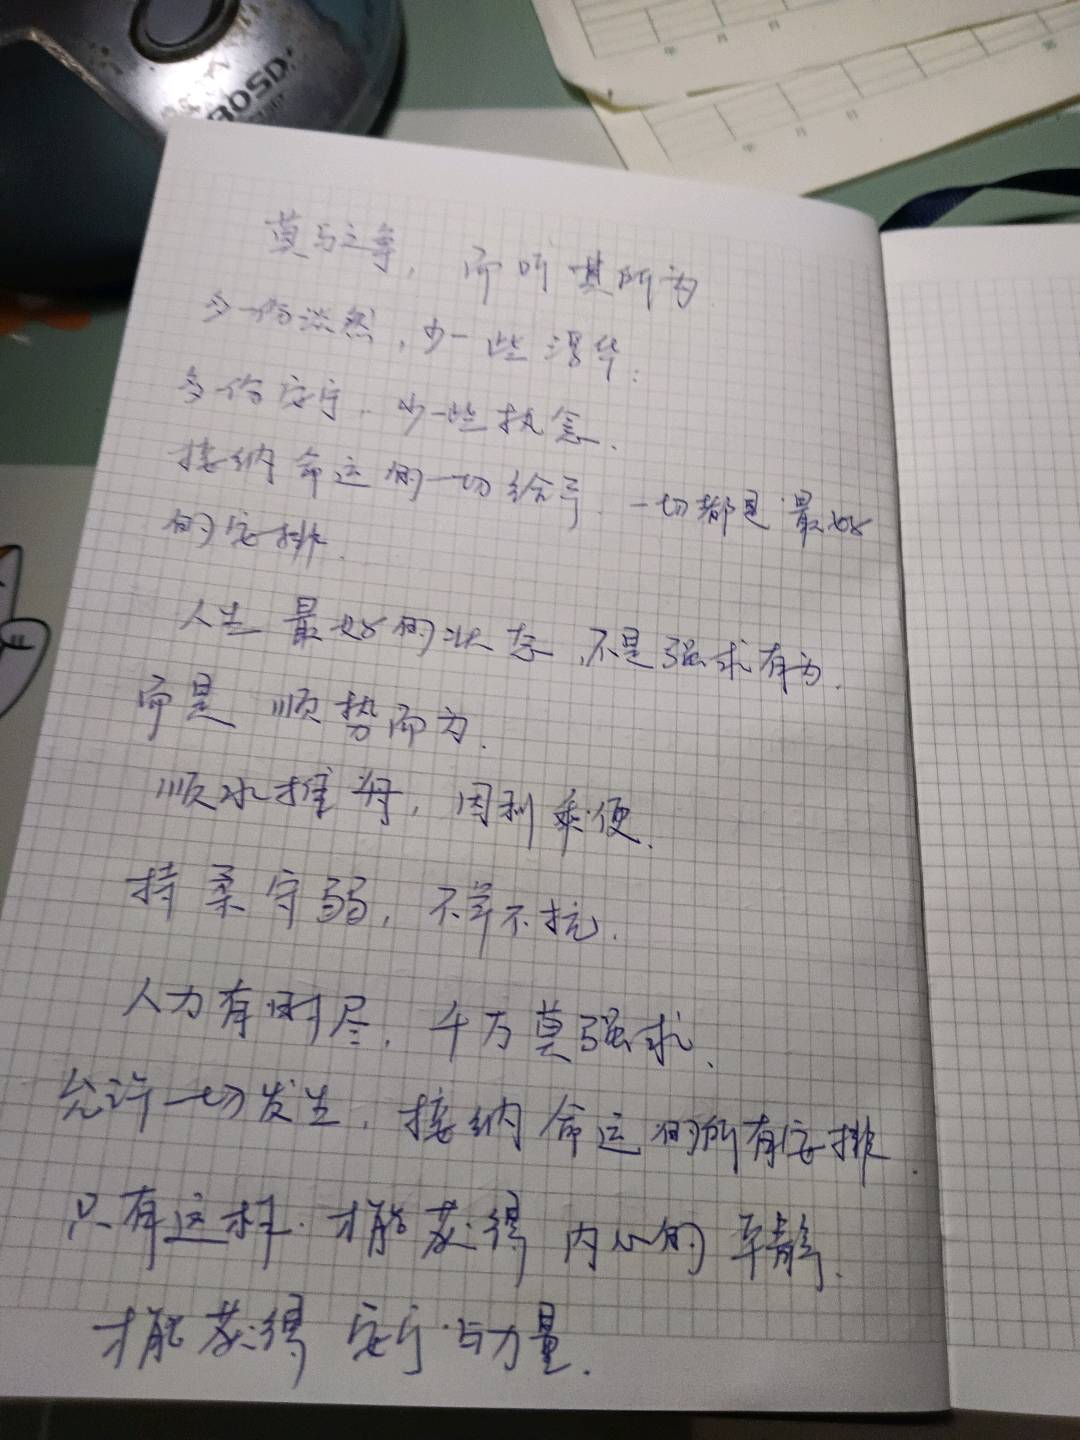 BOSD
年 月 日
年 月 日
莫与之争，而听其所为
多一份淡然，少一些浮华；
多份安宁，少一些执念．
接纳命运的一切给予．一切都是最好
的安排．
人生最好的状态，不是强求有为．
而是顺势而为．
顺水推舟，因利乘便．
持柔守弱，不争不抗．
人力有时尽，千万莫强求．
允许一切发生．接纳命运的所有安排．
只有这样．才能获得内心的平静．
才能获得安宁与力量．